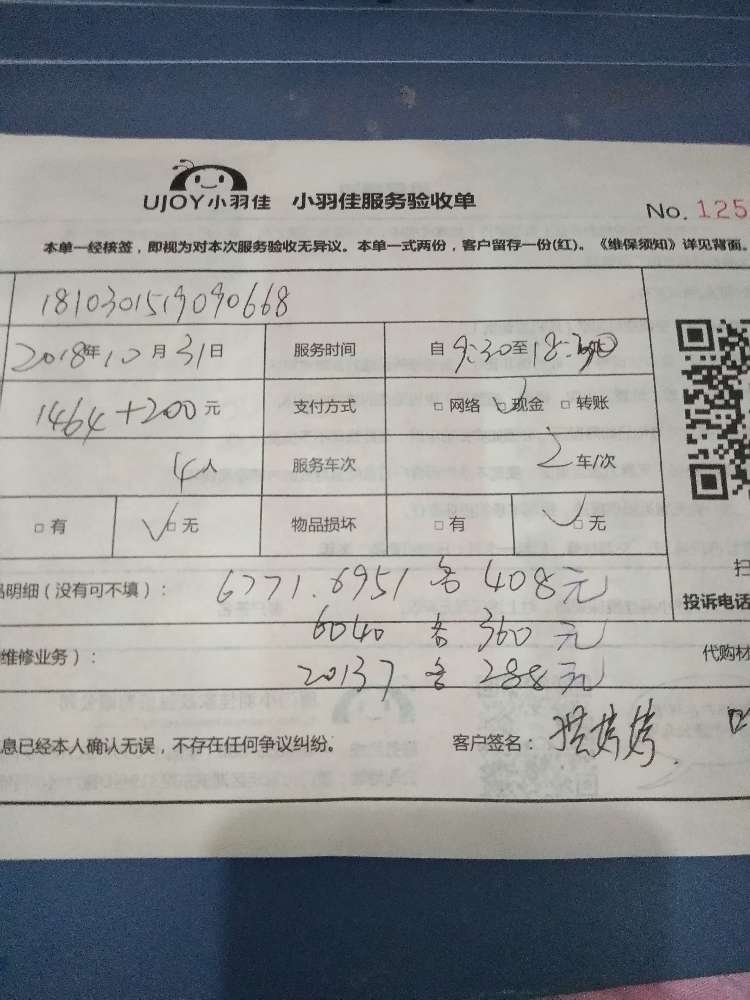 UJOY小羽佳 小羽佳服务验收单
No. 125
本单一经核签，即视为对本次服务验收无异议。本单一式两份，客户留存一份(红)。《维保须知》详见背面。
1810301519090668
2018年10月31日 服务时间 自9:30至18:
1464+200元 支付方式 □网络 □现金 □转账
4人 服务车次 2车/次
□有 □无 物品损坏 □有 □无
品明细（没有可不填）： 6771.6951各408元
扫
投诉电话
6040各360元
维修业务）： 20137各288元
代购材
息已经本人确认无误，不存在任何争议纠纷。 客户签名：